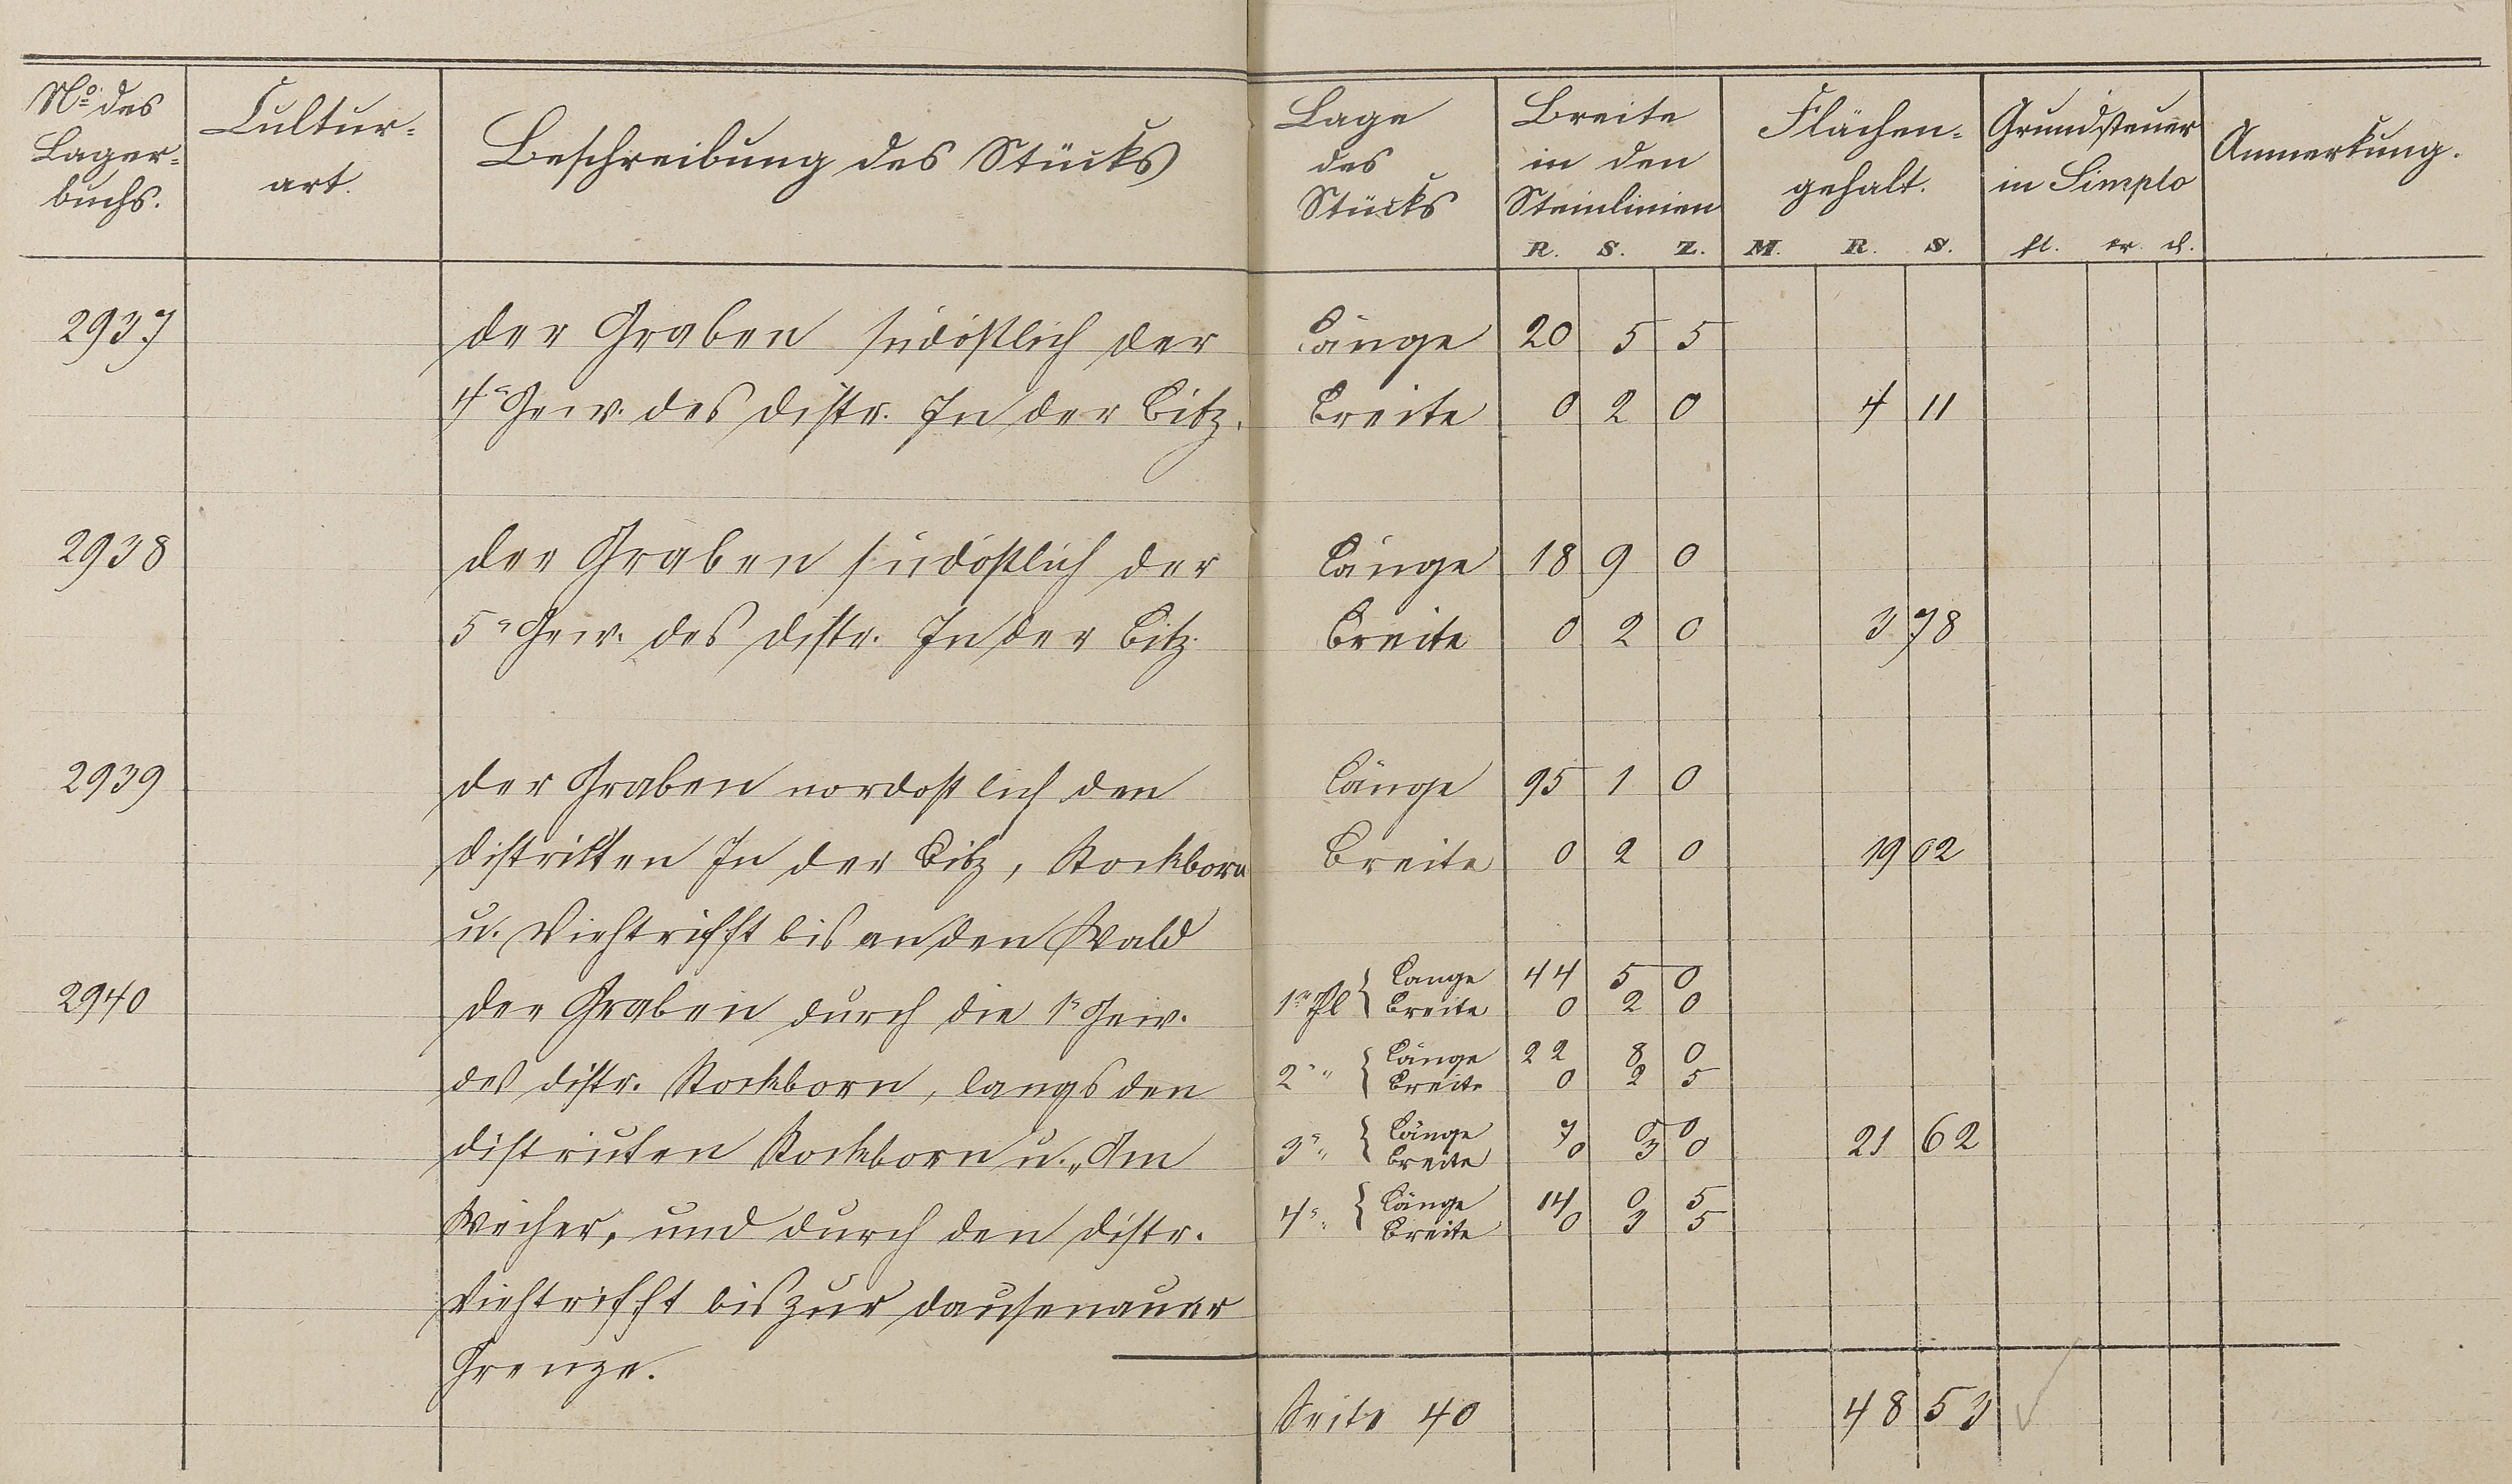 No. des Lager-buchs.
Cultur-art.
Beschreibung des Stücks
Lage des Stücks
Breite in den Steinlinien
R. S. Z.
Flächen-gehalt.
M. R. S.
Grundsteuer in Simplo
fl. xr. d.
Anmerkung.
2937 der Graben südöstlich der Länge 20 5 5
4r Gew. des Distr. In der Bitz. Breite 0 2 0 4 11
2938 der Graben südöstlich der Länge 18 9 0
5r Gew. des Distr. In der Bitz. Breite 0 2 0 3 78
2939 der Graben nordostlich den Länge 95 1 0
Distrikten In der Bitz, Rockborn Breite 0 2 0 19 02
u. Viehtrifft bis an den Wald
1r Thl { Länge 44 5 0
2940 der Graben durch die 1r Gew. Breite 0 2 0
2r " { Länge 22 8 0
des Distr. Rockborn, langs den Breite 0 2 5
3r " { Länge 7 0 0
Distrikten Rockborn u. „Am Breite 0 3 0 21 62
4r " { Länge 14 0 5
Weiher, und durch den Distr. Breite 0 3 5
Viehtrifft bis zur Dausenauer
Grenze.
Seite 40 48 53